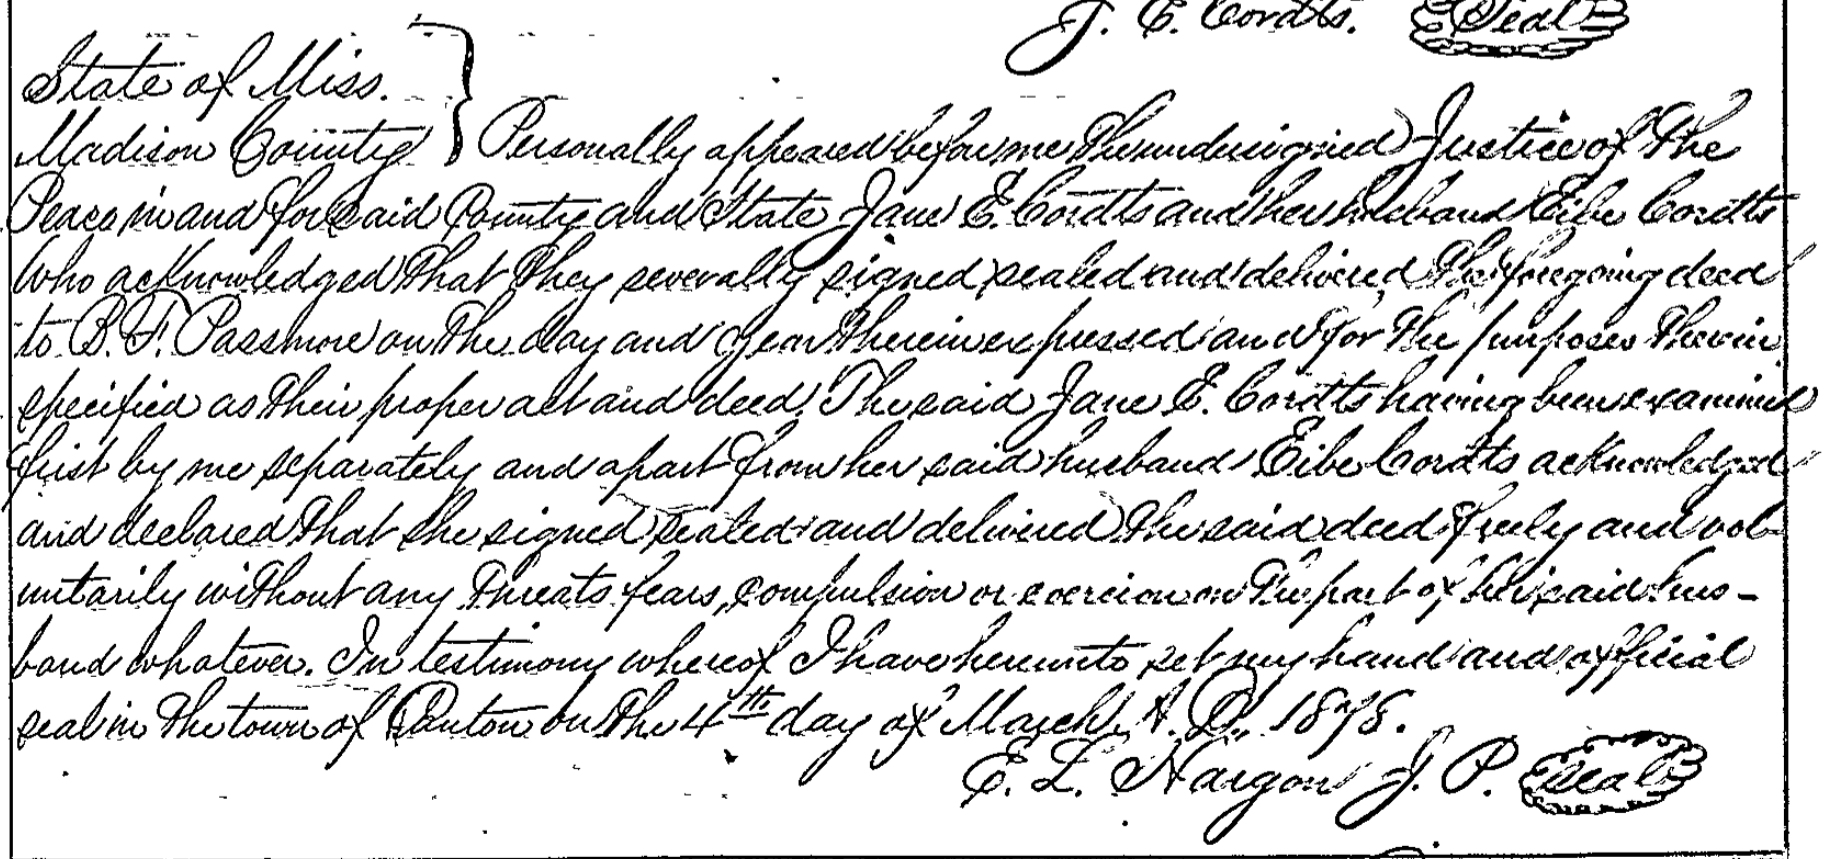 J. E. Cordts. Seal
State of Miss.
Madison County } Personally appeared before me the undersigned Justice of the
Peace in and for said County and State Jane E. Cordts and her husband Eibe Cordts
who acknowledged that they severally signed, sealed and delivered the foregoing deed
to B. F. Passmore on the day and year therein expressed and for the purposes therein
specified as their proper act and deed. The said Jane E. Cordts having been examined
first by me separately and apart from her said husband Eibe Cordts acknowledged
and declared that she signed sealed and delivered the said deed freely and vol-
untarily without any threats, fears, compulsion or coercion on the part of her said hus-
band whatever. In testimony whereof I have hereunto set my hand and official
seal in the town of Canton on the 4th day of March A. D. 1878.
E. L. Hargon J. P. Seal